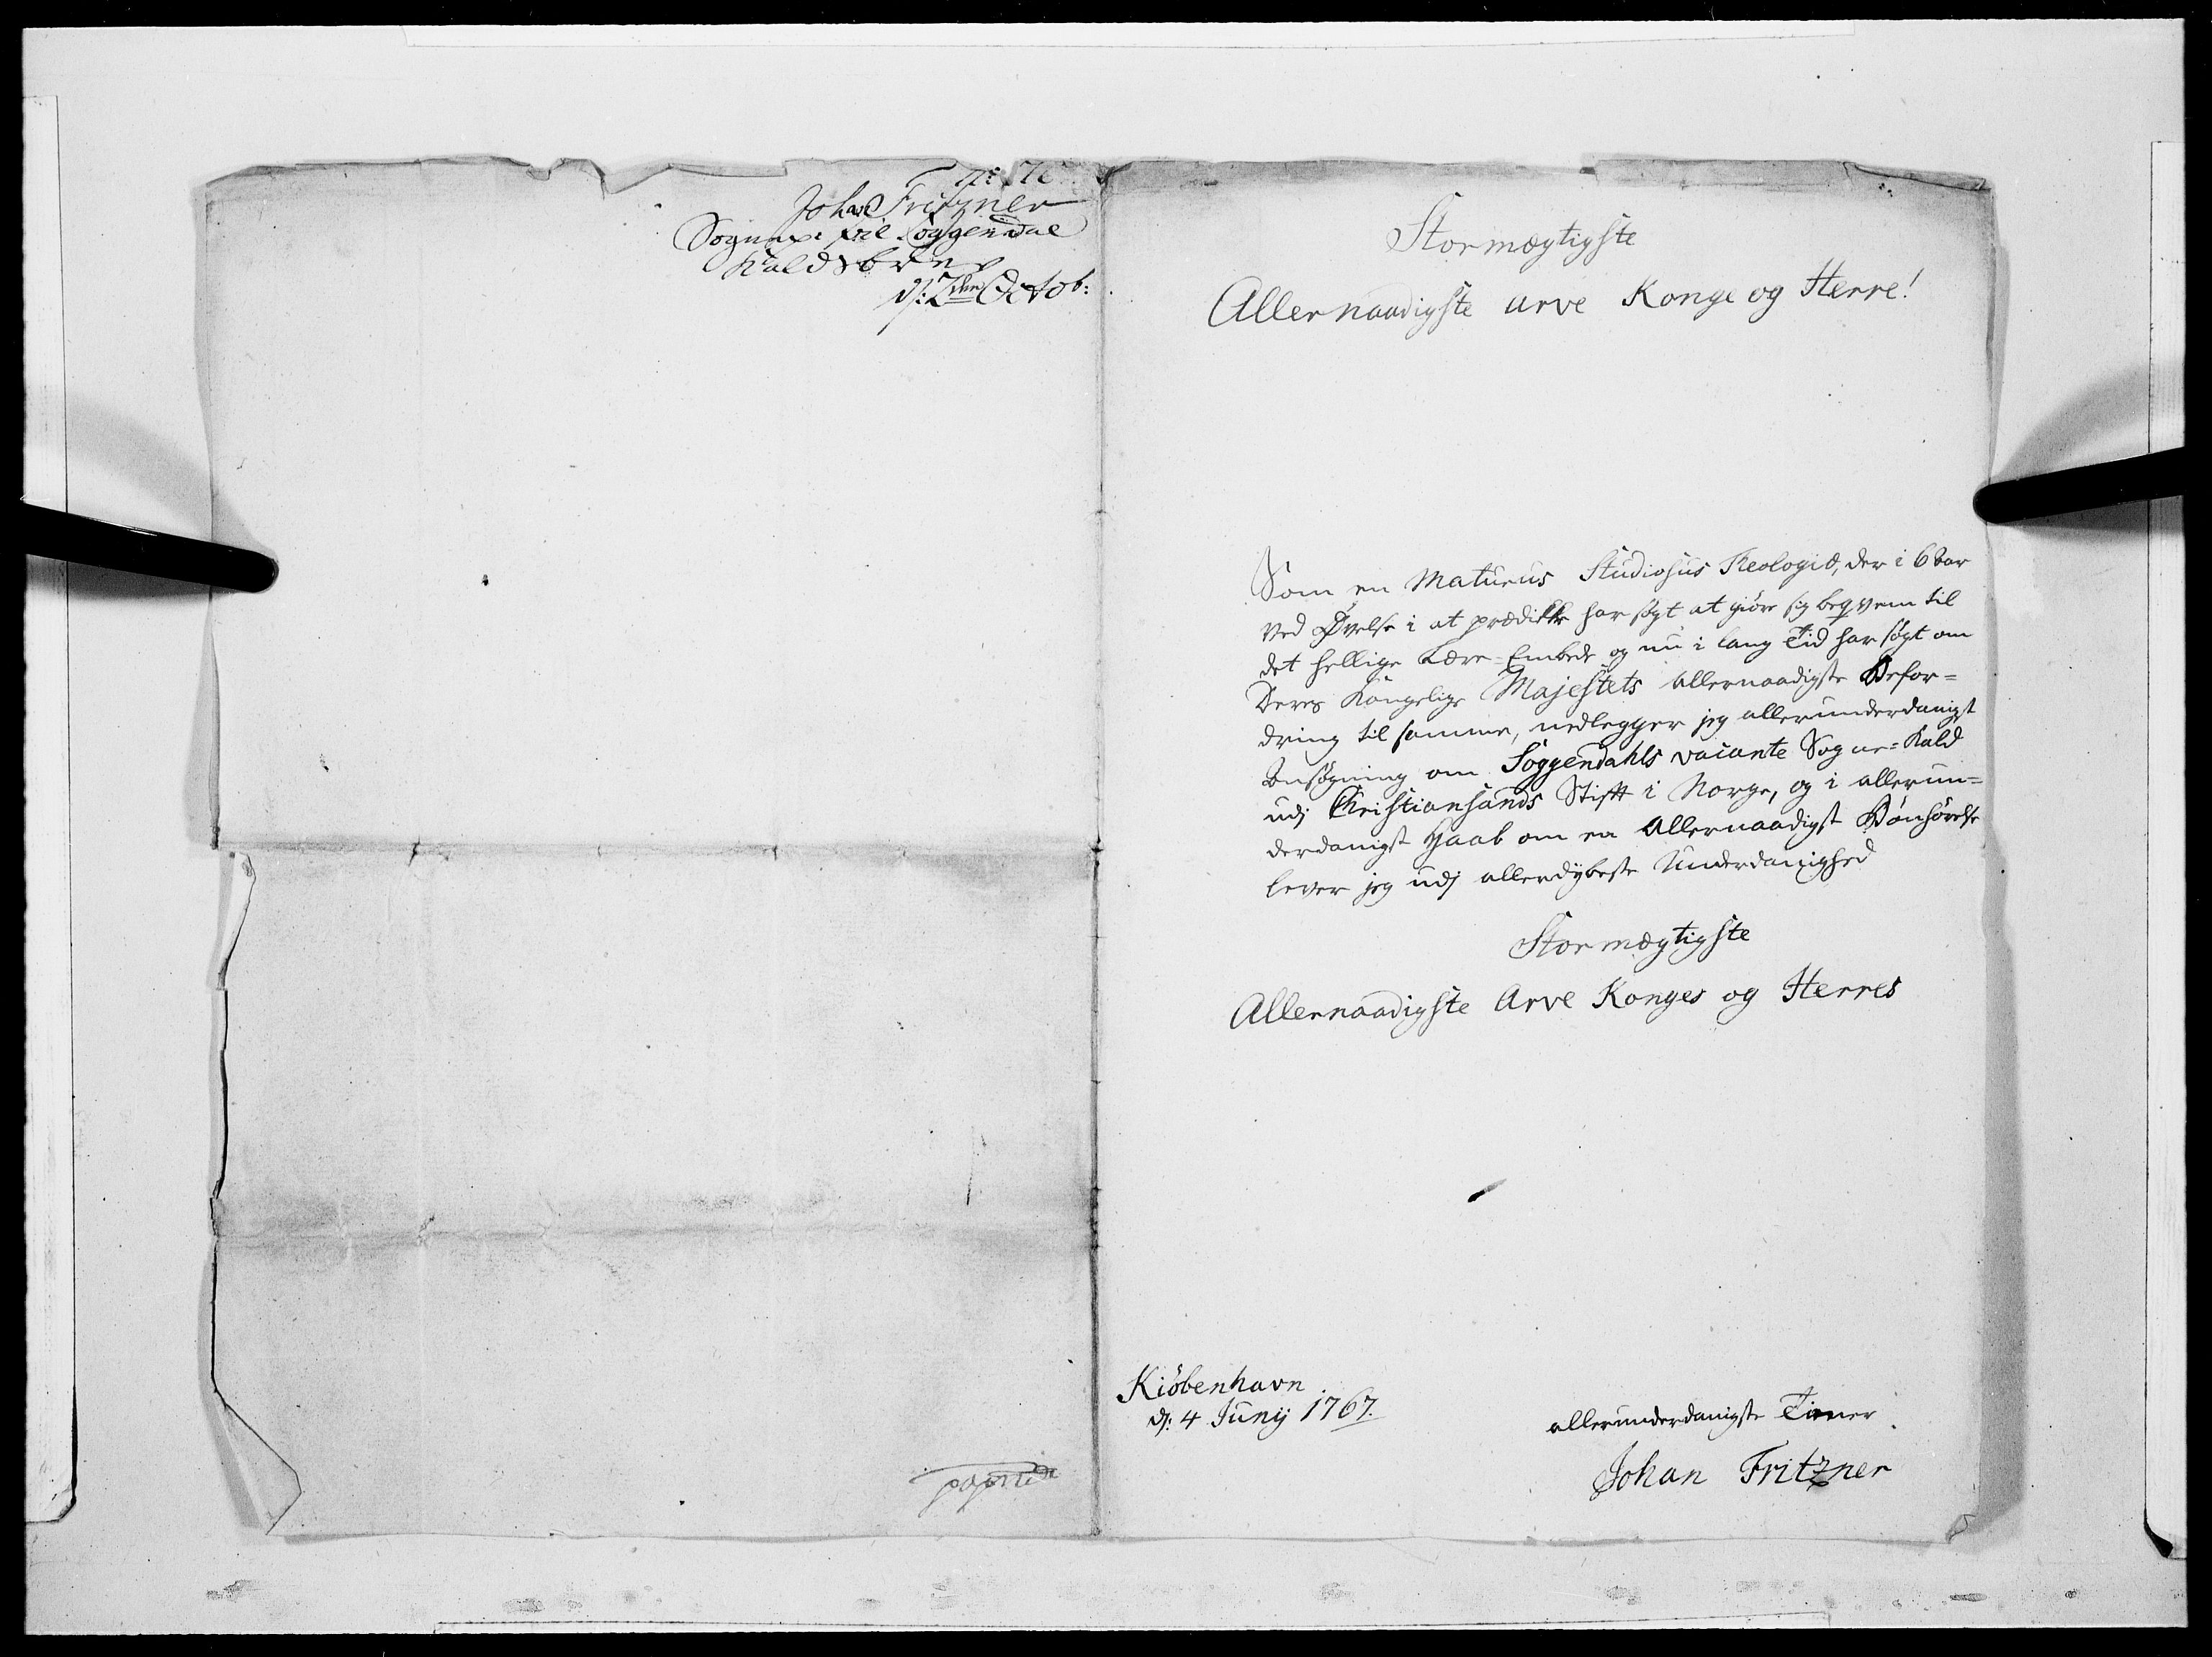 Johan Fritzner
Sognep: til Soggendal
Kaldsbrev
d: 2den Octob:
Stormægtigste
Allernaadigste arve Konge og Herre!
Som en Maturus Studiosus Teologiæ, der i 6 Aar
ved Øvelse i at prædike har søgt at giöre sig beqvem til
det hellige Lære-Embede og nu i lang Tid har søgt om
Deres Kongelige Majestets allernaadigste Befor-
dring til samme, nedlegger jeg allerunderdanigst
Ansøgning om Soggendahls vacante Sogne-Kald
udj Christiansands Stift i Norge, og i allerun-
derdanigst Haab om en allernaadigst Bönhörelse
lever jeg udj allerdybeste Underdanighed
Stormægtigste
Allernaadigste Arve Konges og Herres
Kiöbenhavn
d: 4 Junij 1767.
allerunderdanigste Tiener
Johan Fritzner